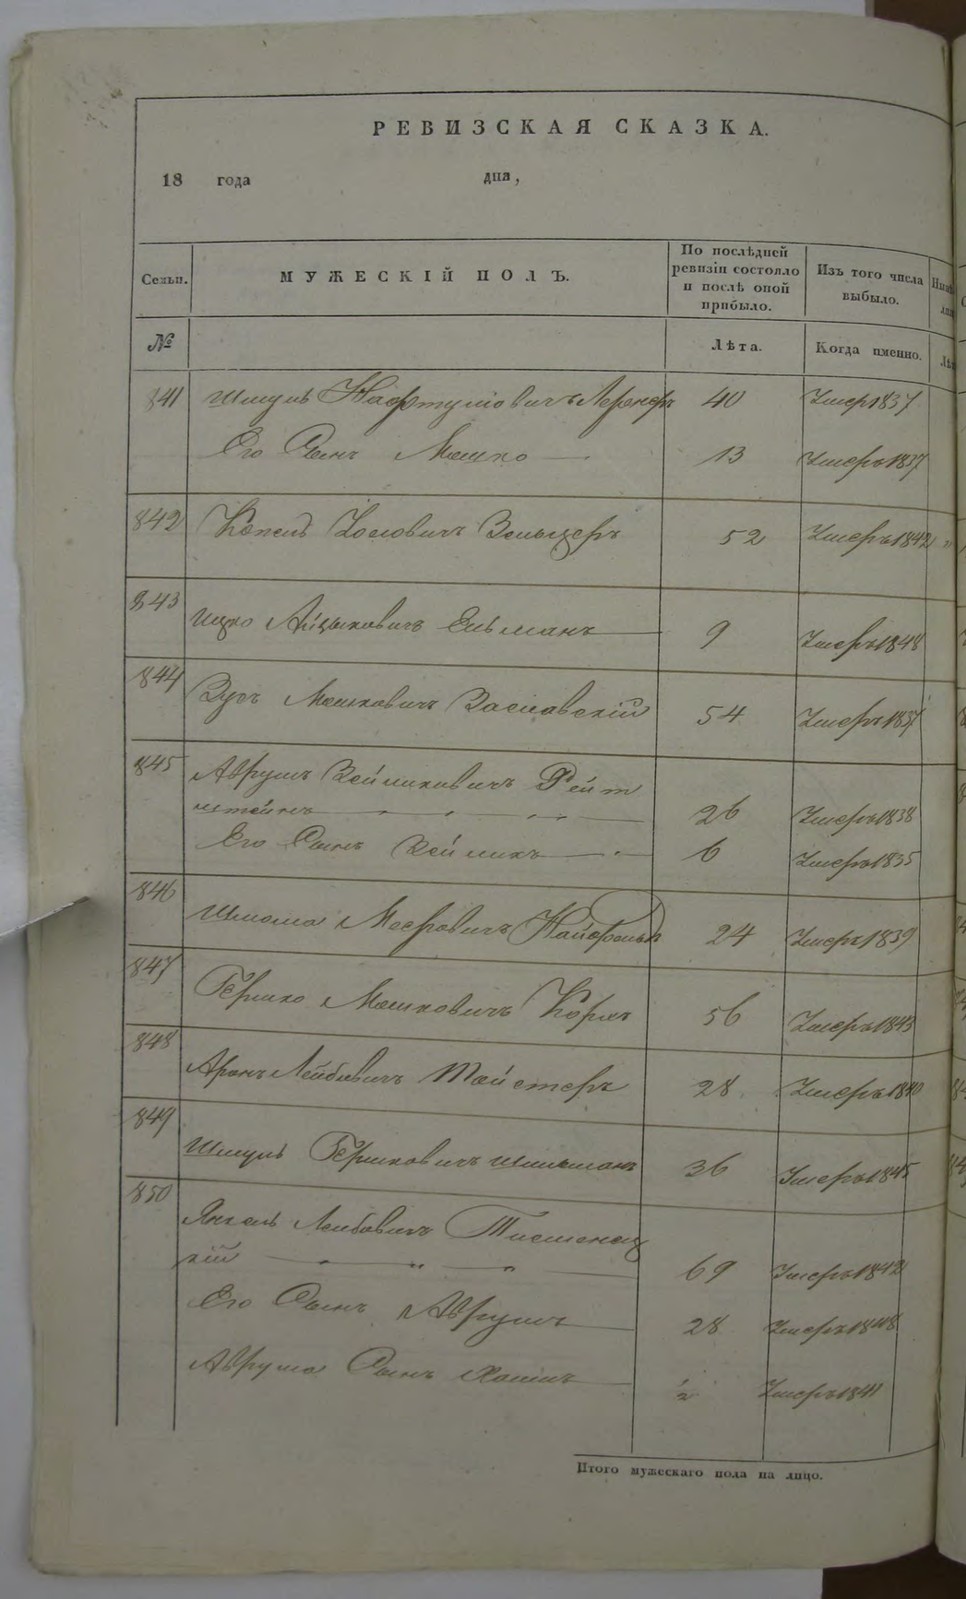 РЕВИЗСКАЯ СКАЗКА.
18 года дня,
Семьи. МУЖЕСКІЙ ПОЛЪ. По послѣдней ревизіи состояло и послѣ оной прибыло. Изъ того числа выбыло.
№ Лѣта. Когда именно.
841 Шмуль Нафтуліовичъ Лернеръ 40 Умеръ 1837
Его Сынъ Мошко 13 Умеръ 1837
842 Копель Іосіовичъ Зельцеръ 52 Умеръ 1842
843 Ицко Айзыковичъ Ельманъ 9 Умеръ 1848
844 Зусь Мошковичъ Заславскій 54 Умеръ 1837
845 Аврумъ Зейликовичъ Рейт
штейнъ 26 Умеръ 1838
Его Сынъ Зейликъ 6 Умеръ 1835
846 Шлома Мееровичъ 24 Умеръ 1839
847 Гершко Мошковичъ Корхъ 56 Умеръ 1843
848 Аронъ Лейбовичъ Тайстеръ 28 Умеръ 1840
849 Шмуль Гершковичъ Шильманъ 36 Умеръ 1845
850 Янкель Лейбовичъ Тисменец
кій 69 Умеръ 1842
Его Сынъ Аврумъ 28 Умеръ 1848
Аврума Сынъ Хаимъ Умеръ 1841
Итого мужескаго пола на лицо.